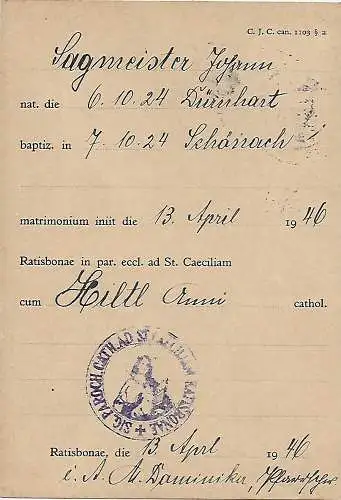 C. J. C. can. 1103 § 2
Sagmeister Johann
nat. die 6. 10. 24 Dürnhart
baptiz. in 7. 10. 24 Schönach
matrimonium iniit die 13. April 1946
Ratisbonae in par. eccl. ad St. Caeciliam
cum Hiltl Anni cathol.
SIG. PAROCH. CATH. AD ST. CAECILIAM RATISBONAE
Ratisbonae, die 13. April 1946
i. A. M. Dominika,